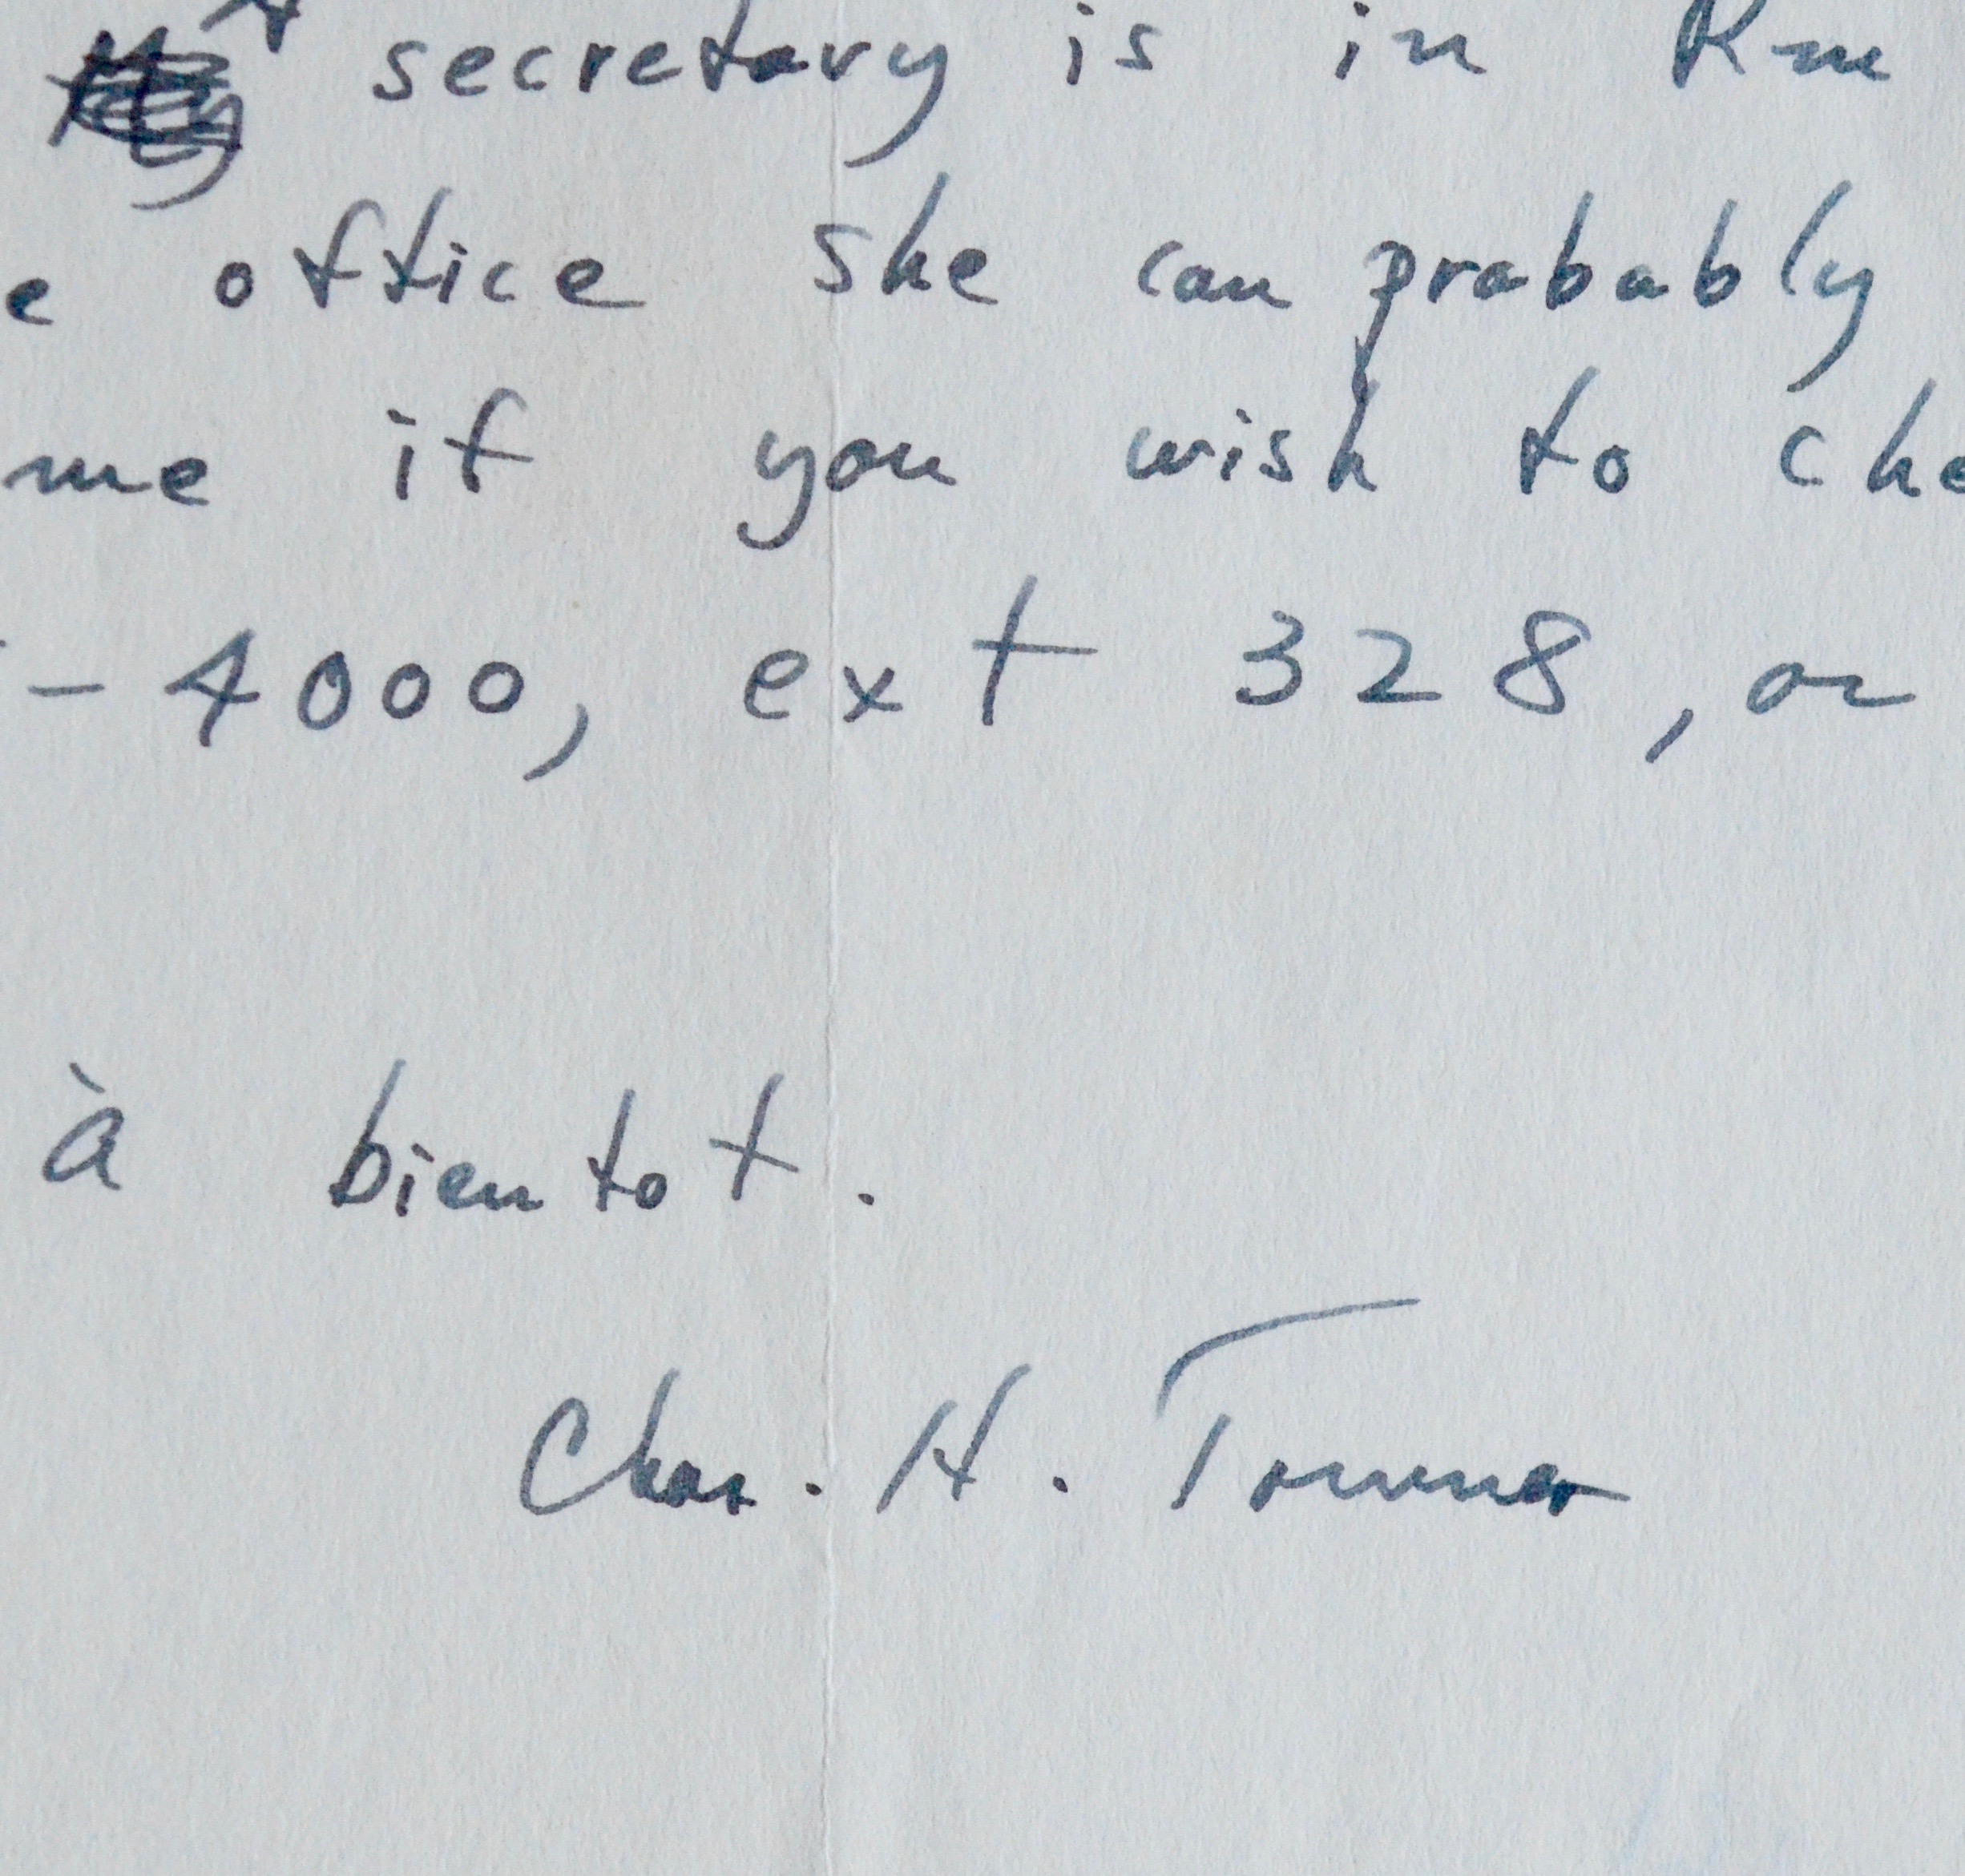 A secretary is in Rm
e office she can probably
me if you wish to che
-4000, ext 328, or
à bientot.
Chas. H. Towner